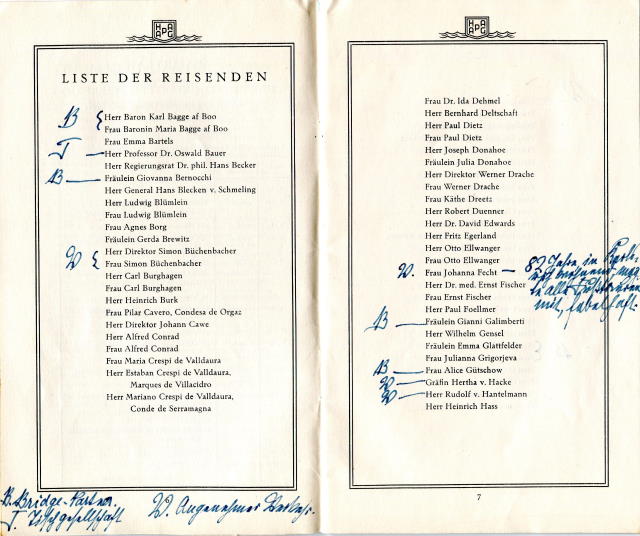 HAPAG
LISTE DER REISENDEN
B
Herr Baron Karl Bagge af Boo
Frau Baronin Maria Bagge af Boo
Frau Emma Bartels
T
Herr Professor Dr. Oswald Bauer
Herr Regierungsrat Dr. phil. Hans Becker
B
Fräulein Giovanna Bernocchi
Herr General Hans Blecken v. Schmeling
Herr Ludwig Blümlein
Frau Ludwig Blümlein
Frau Agnes Borg
Fräulein Gerda Brewitz
W
Herr Direktor Simon Büchenbacher
Frau Simon Büchenbacher
Herr Carl Burghagen
Frau Carl Burghagen
Herr Heinrich Burk
Frau Pilar Cavero, Condesa de Orgaz
Herr Direktor Johann Cawe
Herr Alfred Conrad
Frau Alfred Conrad
Frau Maria Crespi de Valldaura
Herr Estaban Crespi de Valldaura,
Marques de Villacidro
Herr Mariano Crespi de Valldaura,
Conde de Serramagna
B. Bridge-Partner.
T. Tischgesellschaft
W. Angenehmer Verkehr.
HAPAG
Frau Dr. Ida Dehmel
Herr Bernhard Deltschaft
Herr Paul Dietz
Frau Paul Dietz
Herr Joseph Donahoe
Fräulein Julia Donahoe
Herr Direktor Werner Drache
Frau Werner Drache
Frau Käthe Dreetz
Herr Robert Duenner
Herr Dr. David Edwards
Herr Fritz Egerland
Herr Otto Ellwanger
Frau Otto Ellwanger
W.
Frau Johanna Fecht
82 Jahre, in
alle
mit, fabelhaft.
Herr Dr. med. Ernst Fischer
Frau Ernst Fischer
Herr Paul Foellmer
B
Fräulein Gianni Galimberti
Herr Wilhelm Gensel
Fräulein Emma Glattfelder
Frau Julianna Grigorjeva
B
Frau Alice Gütschow
W
Gräfin Hertha v. Hacke
W
Herr Rudolf v. Hantelmann
Herr Heinrich Hass
7